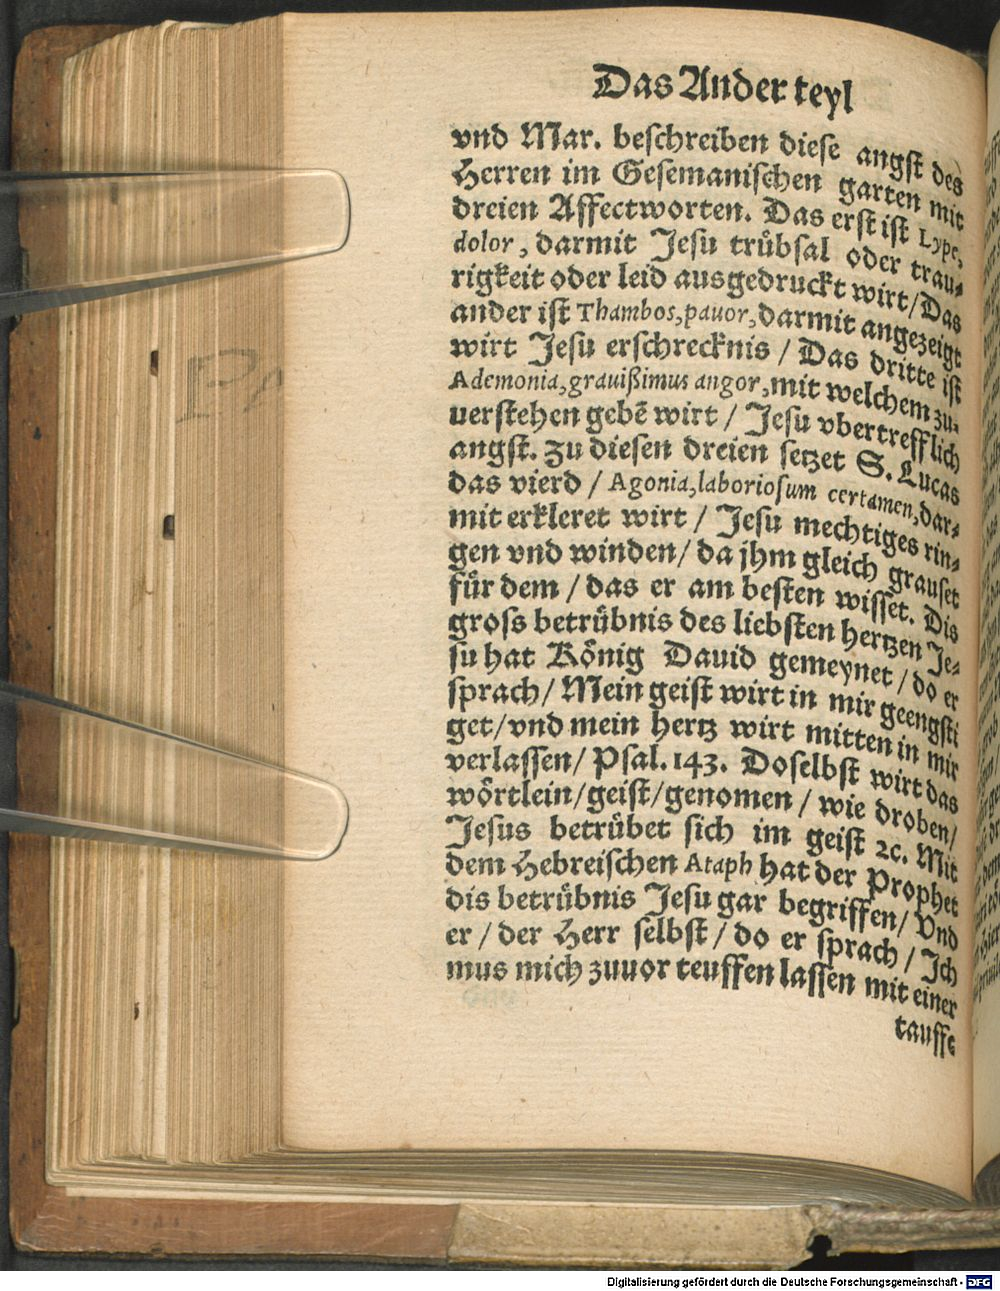 Das Ander teyl
vnd Mar. beschreiben diese angst des
Herren im Gesemanischen garten mit
dreien Affectworten. Das erst ist Lype,
dolor, darmit Jesu trübsal oder trau-
rigkeit oder leid ausgedruckt wirt/ Das
ander ist Thambos, pauor, darmit angezeigt
wirt Jesu erschrecknis / Das dritte ist
Ademonia, grauißimus angor, mit welchem zu-
uerstehen gebē wirt / Jesu vbertrefflich
angst. zu diesen dreien setzet S. Lucas
das vierd / Agonia, laboriosum certamen, dar-
mit erkleret wirt / Jesu mechtiges rin-
gen vnd winden/ da jhm gleich grauset
für dem / das er am besten wisset. Dis
gross betrübnis des liebsten hertzen Je-
su hat König Dauid gemeynet / do er
sprach/ Mein geist wirt in mir geengsti
get/ vnd mein hertz wirt mitten in mir
verlassen/ Psal. 143. Doselbst wirt das
wörtlein/ geist/ genomen / wie droben/
Jesus betrübet sich im geist ꝛc. Mit
dem Hebreischen Ataph hat der Prophet
dis betrübnis Jesu gar begriffen/ Vnd
er / der Herr selbst/ do er sprach / Ich
mus mich zuuor teuffen lassen mit einer
tauffe
Digitalisierung gefördert durch die Deutsche Forschungsgemeinschaft - DFG